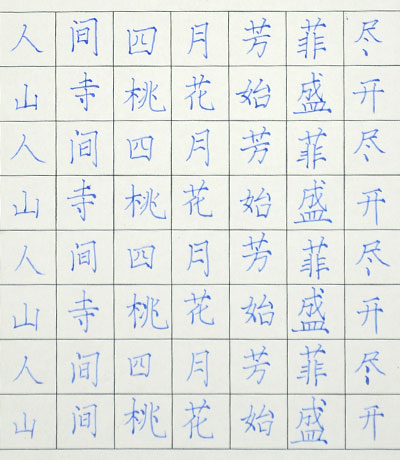 人间四月芳菲尽
山寺桃花始盛开
人间四月芳菲尽
山寺桃花始盛开
人间四月芳菲尽
山寺桃花始盛开
人间四月芳菲尽
山间桃花始盛开